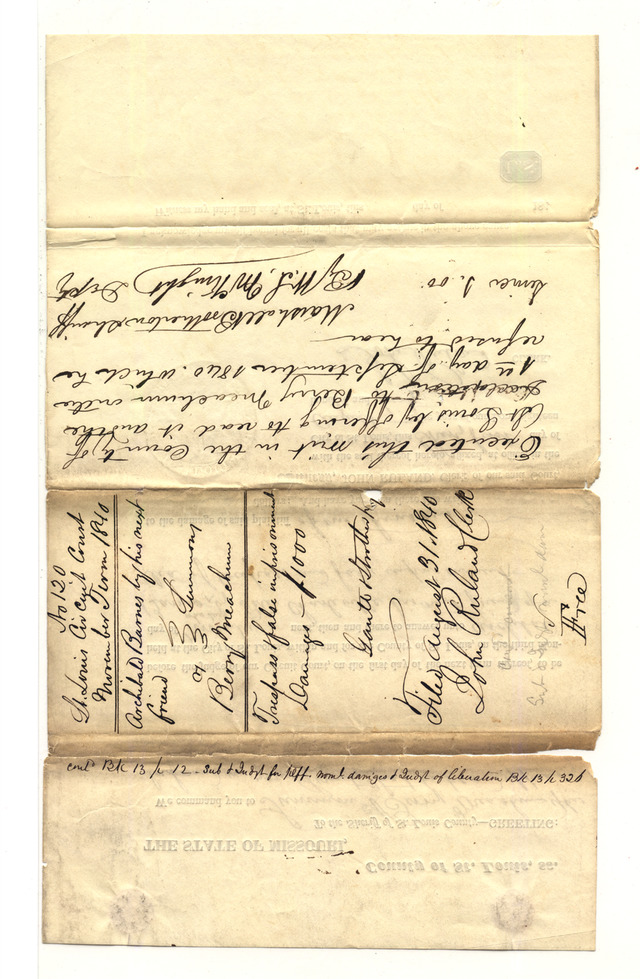 Executed this writ in the County of
St Louis by offering to read it and the
declaration to Berry Meachum on the
1st day of September 1840. Which he
refused to hear
Marshall Brotherton Sheriff
By W. S. McKnight Depty
Service 1.00
No 120
St. Louis Circuit Court
November Term 1840
Archibald Barnes by his next
friend
vs Summons
Berry Meachum
Trespass & false imprisonment
Damages $1000
Filed August 31. 1840
John Ruland Clerk
Free
contd Bk 13 p 12 - Sub & Judgt for plff. noml. damages & Judgt of liberation Bk 13 p 326
We command you to
To the Sheriff of St. Louis County—GREETING:
THE STATE OF MISSOURI,
County of St. Louis, ss.